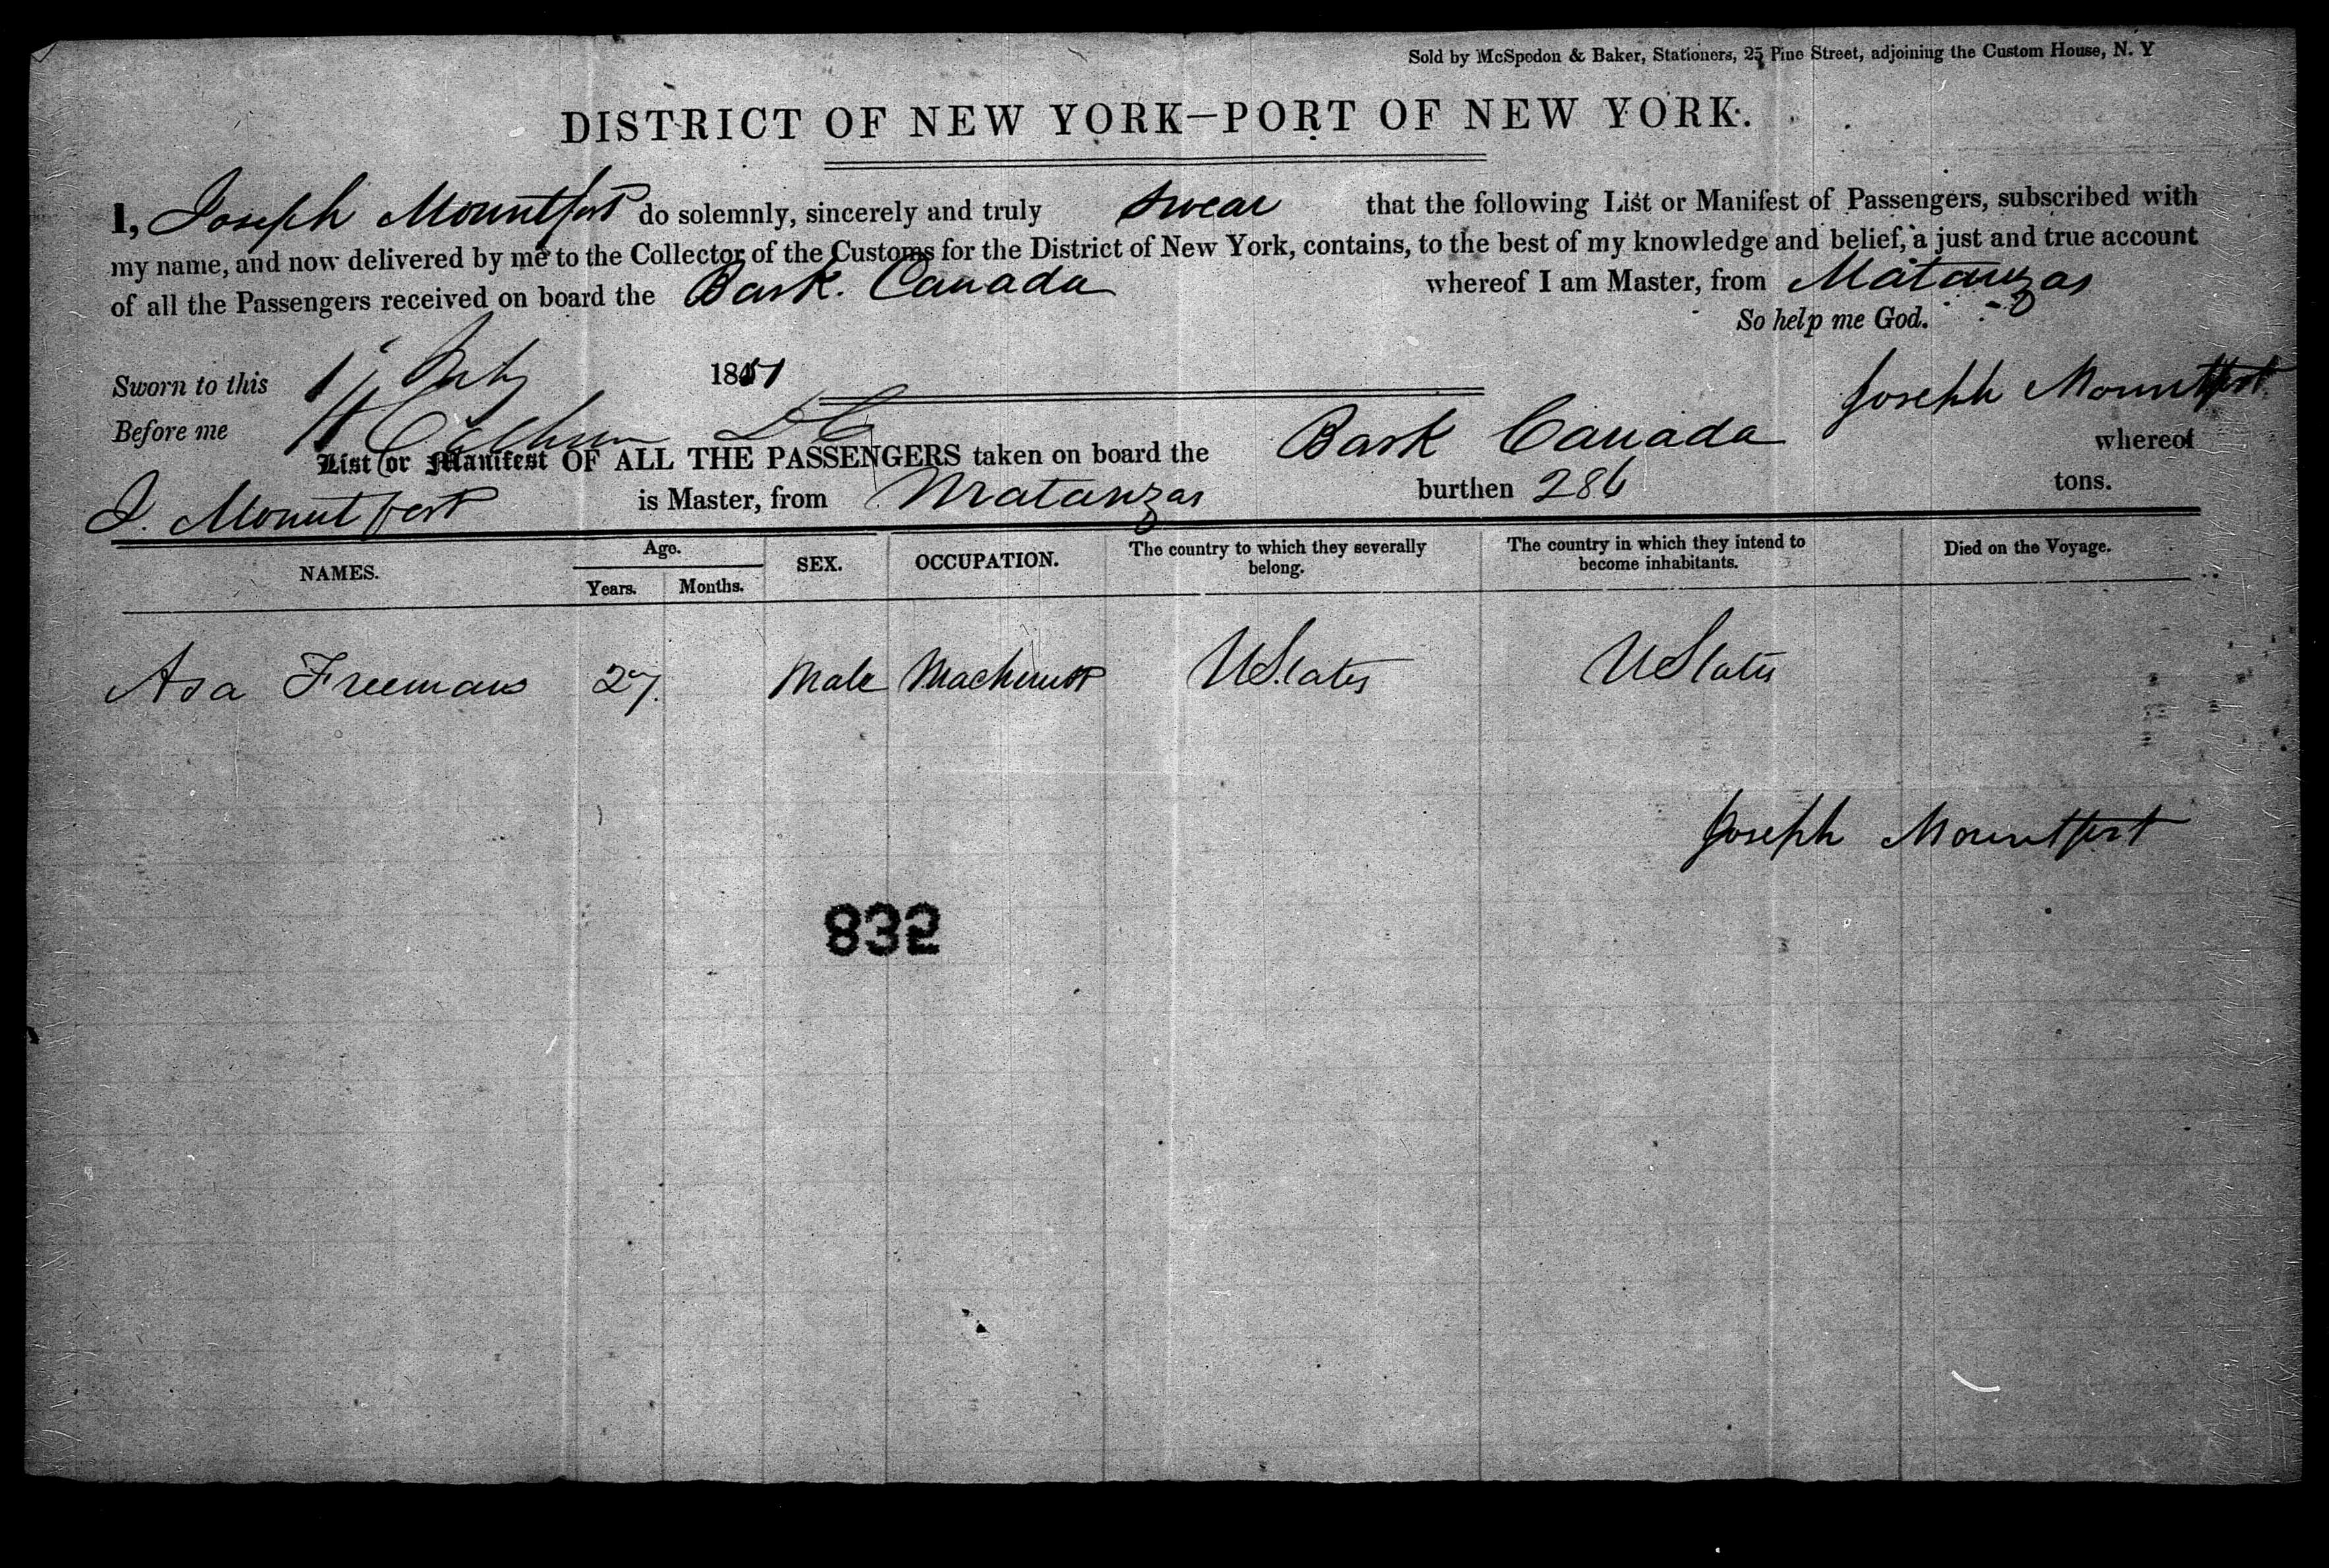 Sold by McSpedon & Baker, Stationers, 25 Pine Street, adjoining the Custom House, N. Y
DISTRICT OF NEW YORK—PORT OF NEW YORK.
I, Joseph Mountfort do solemnly, sincerely and truly swear that the following List or Manifest of Passengers, subscribed with
my name, and now delivered by me to the Collector of the Customs for the District of New York, contains, to the best of my knowledge and belief, a just and true account
of all the Passengers received on board the Bark. Canada whereof I am Master, from Matanzas
So help me God.
Sworn to this 1 July 1851
Joseph Mountfort
Before me Calhoun
List or Manifest OF ALL THE PASSENGERS taken on board the Bark Canada whereof
J. Mountfort is Master, from Matanzas burthen 286 tons.
NAMES. Age. Years. Months. SEX. OCCUPATION. The country to which they severally belong. The country in which they intend to become inhabitants. Died on the Voyage.
Asa Freeman 27. Male Machinist UStates UStates
Joseph Mountfort
832